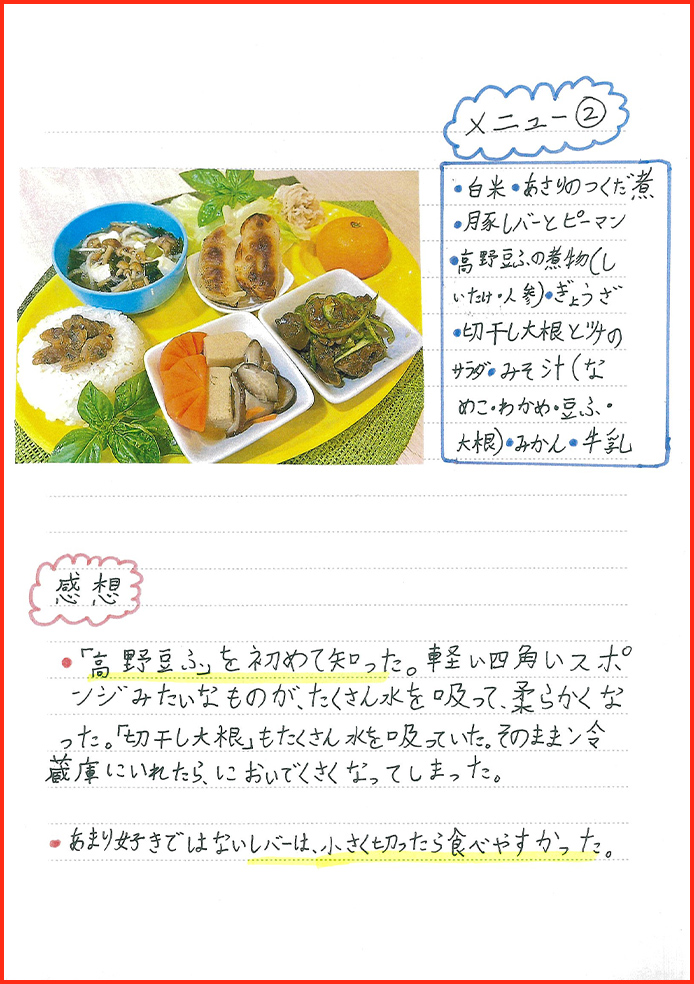 メニュー②
・白米・あさりのつくだ煮
・豚レバーとピーマン
・高野豆ふの煮物(し
いたけ・人参)・ぎょうざ
・切干し大根とツナの
サラダ・みそ汁(な
めこ・わかめ・豆ふ・
大根)・みかん・牛乳
感想
・「高野豆ふ」を初めて知った。軽い四角いスポ
ンジみたいなものが、たくさん水を吸って、柔らかくな
った。「切干し大根」もたくさん水を吸っていた。そのまま冷
蔵庫にいれたら、においでくさくなってしまった。
・あまり好きではないレバーは、小さく切ったら食べやすかった。